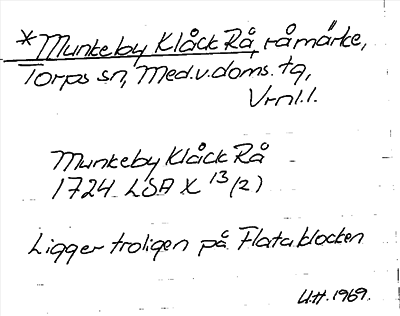 *Munkeby Klåck Rå, råmärke,
Torps sn, Med.v.doms. tg,
Vrml.l.
Munkeby Klåck Rå
1724 LSA X 13 (2)
Ligger troligen på Flatablocken
U.H. 1969.